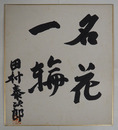 名花
一輪
田村泰次郎